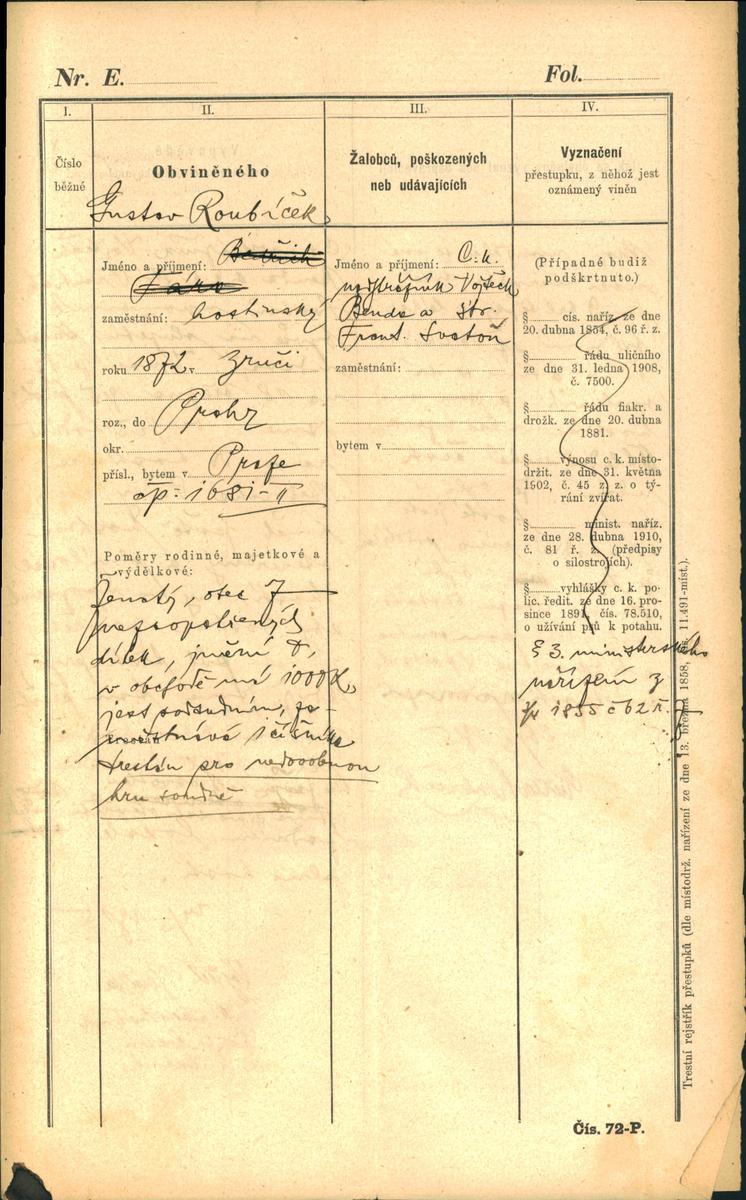 Nr. E.
Fol.
I.
II.
III.
IV.
Číslo
běžné
Obviněného
Gustav Roubíček
Žalobců, poškozených
neb udávajících
Vyznačení
přestupku, z něhož jest
oznámený viněn
Jméno a příjmení:
zaměstnání: hostinský
roku 1872 v Zruči
roz., do Prahy
okr.
přísl., bytem v Praze
čp. 1681-II
Poměry rodinné, majetkové a
výdělkové:
Ženatý, otec 7
nezaopatřených
dítek, jmění 0,
v obchodě má 1000 K,
jest podsudním, za-
městnává 1 číšníka
trestán pro nedovolenou
hru soudně
Jméno a příjmení: C. k.
nadstrážník Vojtěch
Benda a str.
Frant. Svatoň
zaměstnání:
bytem v
(Případné budiž
podškrtnuto.)
§ cís. naříz. ze dne
20. dubna 1854, č. 96 ř. z.
§ řádu uličního
ze dne 31. ledna 1908,
č. 7500.
§ řádu fiakr. a
drožk. ze dne 20. dubna
1881.
§ výnosu c. k. místo-
držit. ze dne 31. května
1902, č. 45 z. z. o tý-
rání zvířat.
§ minist. naříz.
ze dne 28. dubna 1910,
č. 81 ř. z. (předpisy
o silostrojích).
§ vyhlášky c. k. po-
lic. ředit. ze dne 16. pro-
since 1891, čís. 78.510,
o užívání psů k potahu.
§ 3. ministerského
nařízení z
1855 č 62 ř.
Trestní rejstřík přestupků (dle místodrž. nařízení ze dne 13. března 1858, čís. 11.491-míst.).
Čís. 72-P.